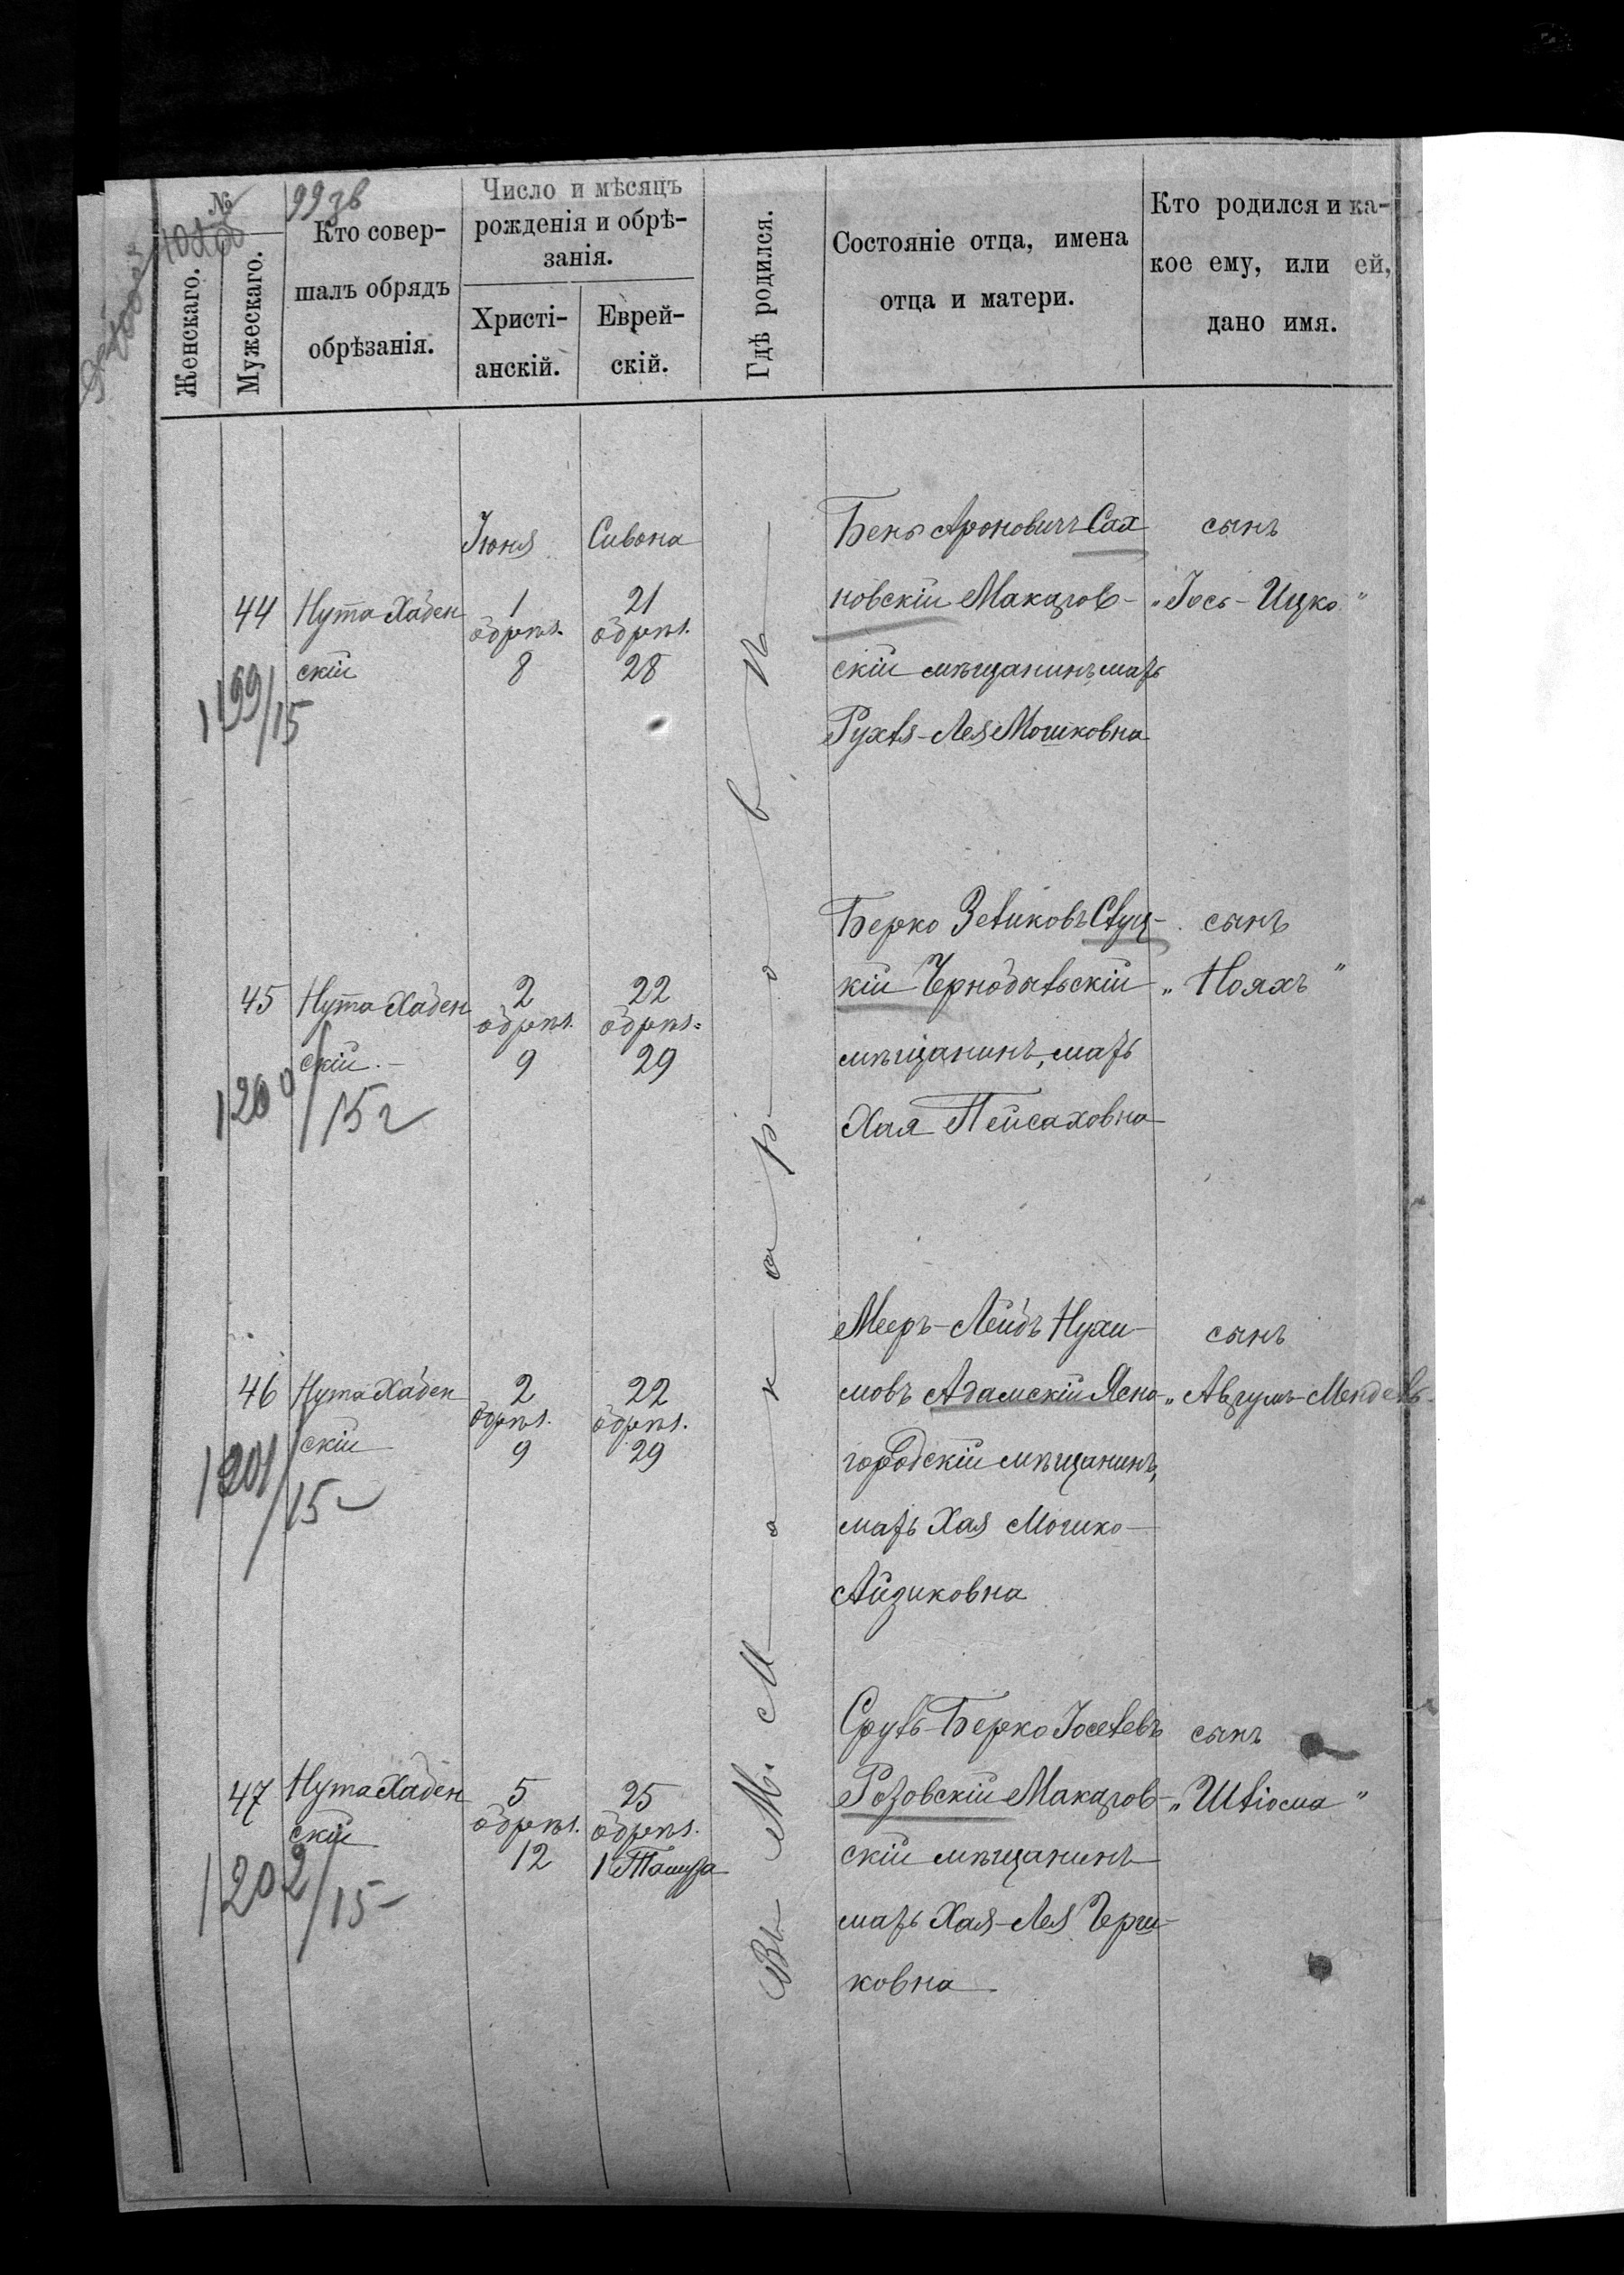 №
99 зв
Женскаго.
Мужескаго.
Кто совер-
шалъ обрядъ
обрѣзанія.
Число и мѣсяцъ
рожденія и обрѣ-
занія.
Христі-
анскій.
Еврей-
скій.
Гдѣ родился.
Состояніе отца, имена
отца и матери.
Кто родился и ка-
кое ему, или ей,
дано имя.
Въ М. Макаровѣ
Іюня
Сивона
44
Нута Хабен
скій
1199/15
1
обрѣз.
8
21
обрѣз.
28
Бенъ Ароновичъ Сах
новскій Макаров-
скій мѣщанинъ мать
Рухля-Лея Мошковна
сынъ
„Іось-Ицко"
45
Нута Хабен
скій.-
1200/15 г
2
обрѣз.
9
22
обрѣз.
29
Берко Зеликовъ Слуц-
кій Чернобыльскій
мѣщанинъ, мать
Хая Пейсаховна
сынъ
„Нояхъ"
46
Нута Хабен
скій
1201/15-
2
обрѣз.
9
22
обрѣз.
29
Мееръ-Лейбъ Нухи-
мовъ Адамскій Ясно-
городскій мѣщанинъ,
мать Хая Мошко-
Айзиковна
сынъ
„Аврумъ-Мендель
47
Нута Хабен
скій
1202/15-
5
обрѣз.
12
25
обрѣз.
1 Тамуза
Сруль-Берко Іоселевъ
Розовскій Макаров-
скій мѣщанинъ
мать Хая-Лея Герш-
ковна
сынъ
„Шліома"